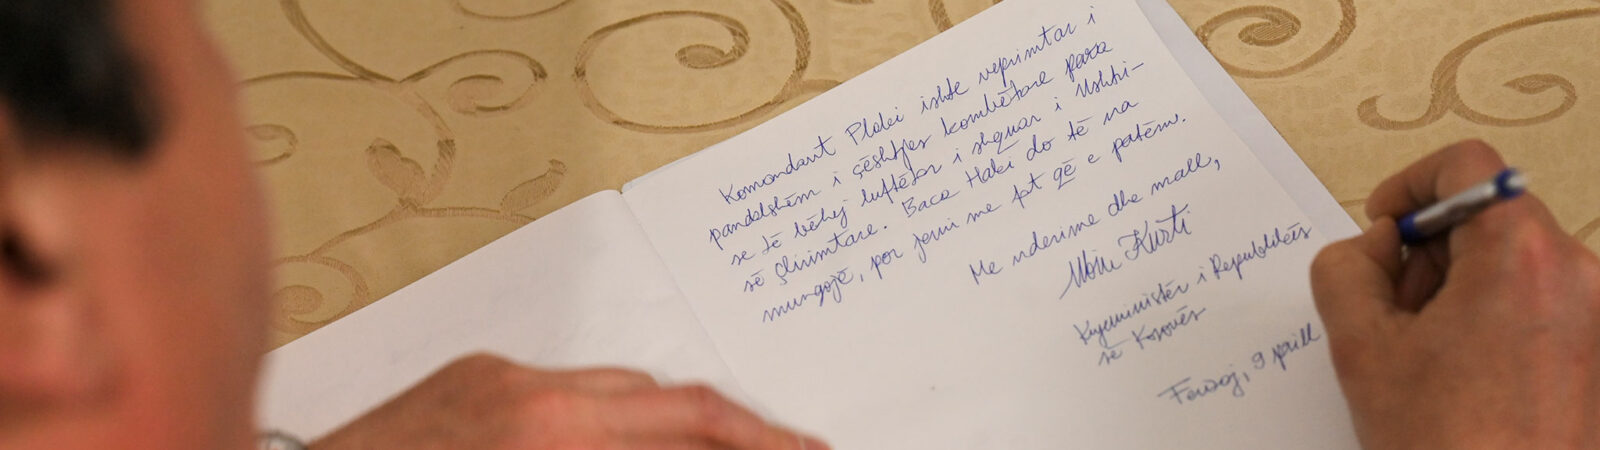 Komandant Plaki ishte veprimtar i
pandalshëm i çështjes kombëtare para
se të bëhej luftëtar i shquar i Ushtri-
së Çlirimtare. Baca Haki do të na
mungojë, por jemi me fat që e patëm.
Me nderime dhe mall,
Albin Kurti
Kryeministër i Republikës
së Kosovës
Ferizaj, 9 prill